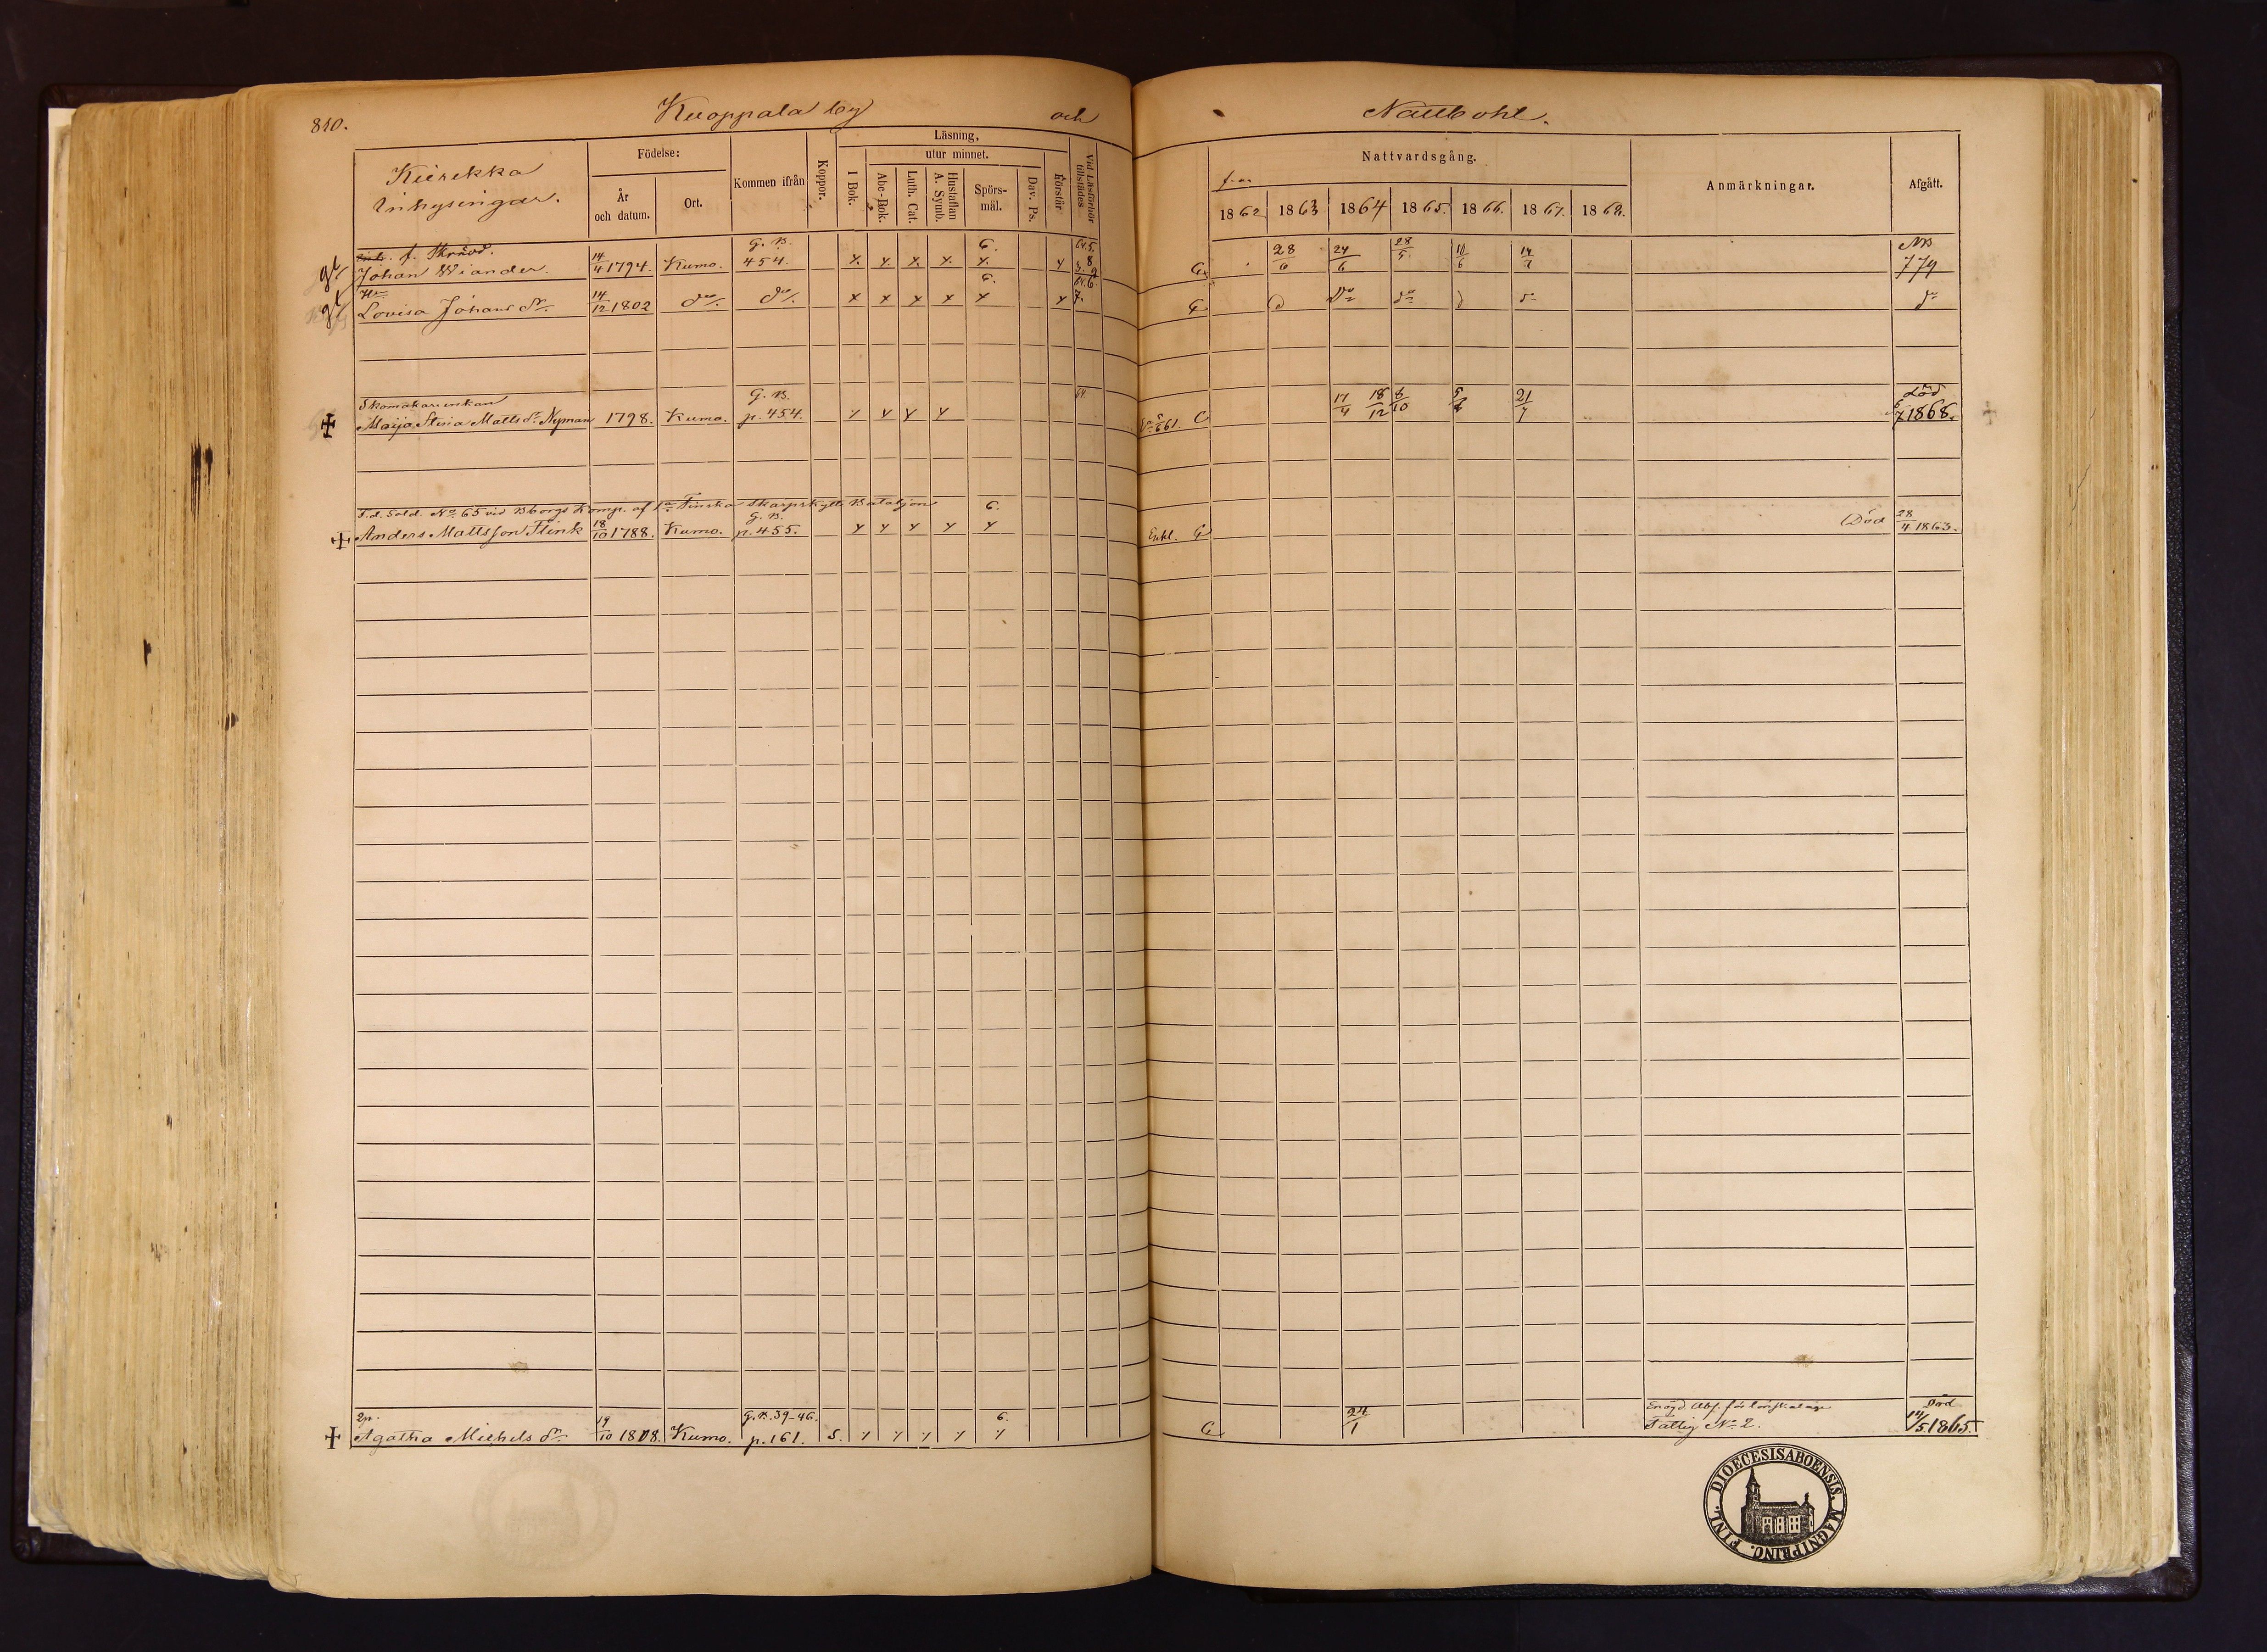 810. Kuoppala by och Nättbohl.
Kierikka
Inhysingar.
Födelse:
År och datum.
Ort.
Kommen ifrån
Koppor.
Läsning,
utur minnet.
I Bok.
Abc-Bok.
Luth. Cat.
Hustaflan A. Symb.
Spörsmål.
Dav. Ps.
Förstår
Vid Läsförhör tillstädes
Nattvardsgång.
1862 1863 1864 1865. 1866. 1867. 1868.
Anmärkningar.
Afgått.
f. Skrädd. G. B. 6. 64.5. NB
Johan Wiander. 14/4 1794. Kumo. 454. x. x x. x. x. x G 28/6 24/6 28/5 10/6 14/7 779
Hu 6.
Lovisa Johans dr. 14/12 1802 do do x x x x x x 7. G do do do
Skomakareenkan G. B. 64 Död
Maija Stina Matts dr Nyman 1798. Kumo. p. 454. x x x x C 17/4 18/12 8/10 21/7 6/7 1868.
F. d. Sold. No 65 vid Bborgs Komp. af 1a Finska Skarpskytte Bataljon 6.
G. B.
Anders Mattsson Flink 18/10 1788. Kumo. p. 455. x x x x x Enkl. G Död 28/4 1863.
G. B. 39-46. 6. Död
Agatha Michels dr 19/10 1808. Kumo. p. 161. S. x x x x x G 24/1 Fattig No 2. 14/5 1865.
DIOECESIS ABOENSIS. MAGNI PRINC. FINL.